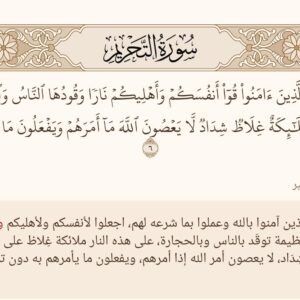 سُورَةُ التَّحْرِيمِ
لَّذِينَ ءَامَنُوا۟ قُوٓا۟ أَنفُسَكُمْ وَأَهْلِيكُمْ نَارًا وَقُودُهَا ٱلنَّاسُ
لَـٰٓئِكَةٌ غِلَاظٌ شِدَادٌ لَّا يَعْصُونَ ٱللَّهَ مَآ أَمَرَهُمْ وَيَفْعَلُونَ مَا
٦
ذين آمنوا بالله وعملوا بما شرعه لهم، اجعلوا لأنفسكم ولأهليكم و
ظيمة توقَد بالناس وبالحجارة، على هذه النار ملائكة غِلاظ على
شِدَاد، لا يعصون أمر الله إذا أمرهم، ويفعلون ما يأمرهم به دون